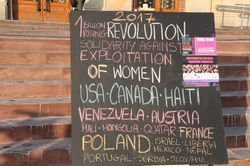 2017
1 BILLION
RISING REVOLUTION
SOLIDARITY AGAINST
EXPLOITATION
OF WOMEN
USA·CANADA·HAITI
VENEZUELA·AUSTRIA
MALI·MONGOLIA·QUATAR FRANCE
POLAND ISRAEL·LIBERIA
MEXICO NEPAL
PORTUGAL·SERBIA·SLOVAKIA